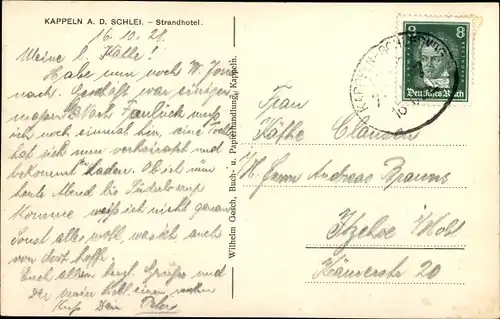 KAPPELN A. D. SCHLEI. – Strandhotel.
16.10.28.
Meine l. Käthe!
Habe nun noch W.
nach. Geschäft war einiger-
maßen. Nach muß
ich noch einmal hin, eine Tochter
hat sich nun verheiratet und
bekommt Laden. Ob ich nun
heute Abend bis
komme weiß ich nicht genau
Sonst alles wohl, was ich auch
von dort hoffe.
Euch allen herzl. Grüße und
Dir einen
Kuß Dein
Wilhelm Gesch, Buch- u. Papierhandlung, Kappeln.
KAPPELN-SCHLESWIG
8 8
Deutsches Reich
Frau
Käthe Claußen
p. Herrn Andreas Bruuns
Itzehoe Holst
20